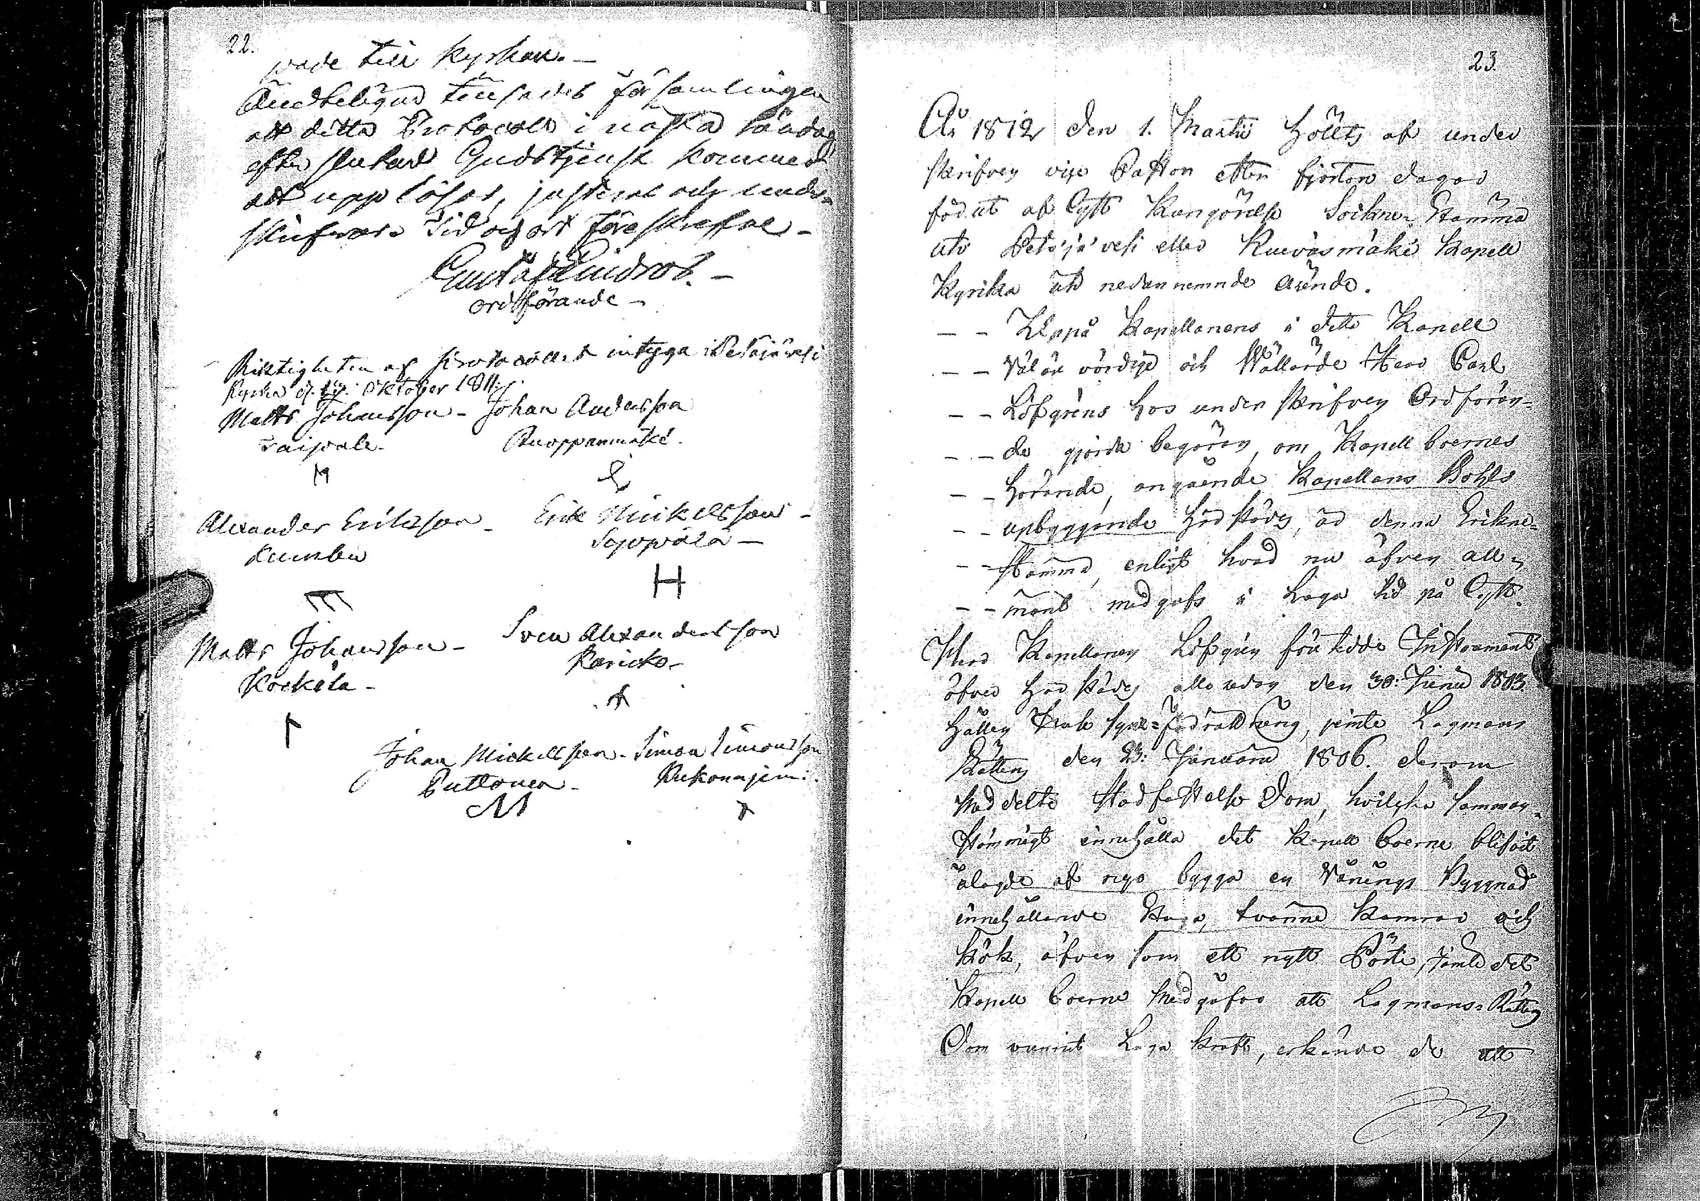 22.
vade till kyrkan. —
Ändteligen tillsades församlingen
att detta Protocoll i nästa söndag
efter slutad Gudstjenst kommer
att uppläsas, justeras och under-
skrifvas. Tid och ort föreskrefne —
Gustaf
ordförande —
Riktigheten af protocollet intyga i Petäjävesi
Kyrka d. Oktober 1811.
Matts Johansson — Johan Andersson
Taipale. Ruoppanmäki.
Alexander Ericsson — Erik Mickelsson —
Kumbu
H
Matts Johansson — Sven Alexandersson
Kockila — Karicko —
Johan Mickelsson — Simon Simonsson
Puttonen —
M
23.
År 1812 den 1. Martii hölts af under
skrifven vice Pastor efter fjorton dagar
förut af lyst kungörelse Sockne Stämma
uti Petäjävesi eller Kuivasmäki kapell
kyrka uti nedannemnde ärende.
— — Uppå Kapellanens i detta Kapell
— — Väl ärevördige och Wällärde Herr Carl
— — Löfgrens hos underskrifven Ordföran-
— — de gjorde begäran, om Kapell boernes
— — hörande, angående Kapellans Bohls
— — upbyggande
— — Stämma, enligt hvad nu äfven all-
— — mänt medgafs i Laga tid på lyst.
Herr Kapellanen Löfgren företedde Instrument
öfver alla redan den 30: Junii 1803
hållen Husesyns förrättning, jemte Lagmans
Rättens den 23: Januarii 1806. derom
meddelte Stadfästelse Dom, hvilka samman-
stämmigt innehålla det Kapell boerne blifvit
ålagde at nyo bygga en Vånings Byggnad
innehållande Stuga, tvänne Kamrar och
kök, äfven som ett nytt Pörte, jämte det
Kapell boerne medgåfvo att Lagmans-Rättens
Dom vunnit Laga kraft, erkände de att